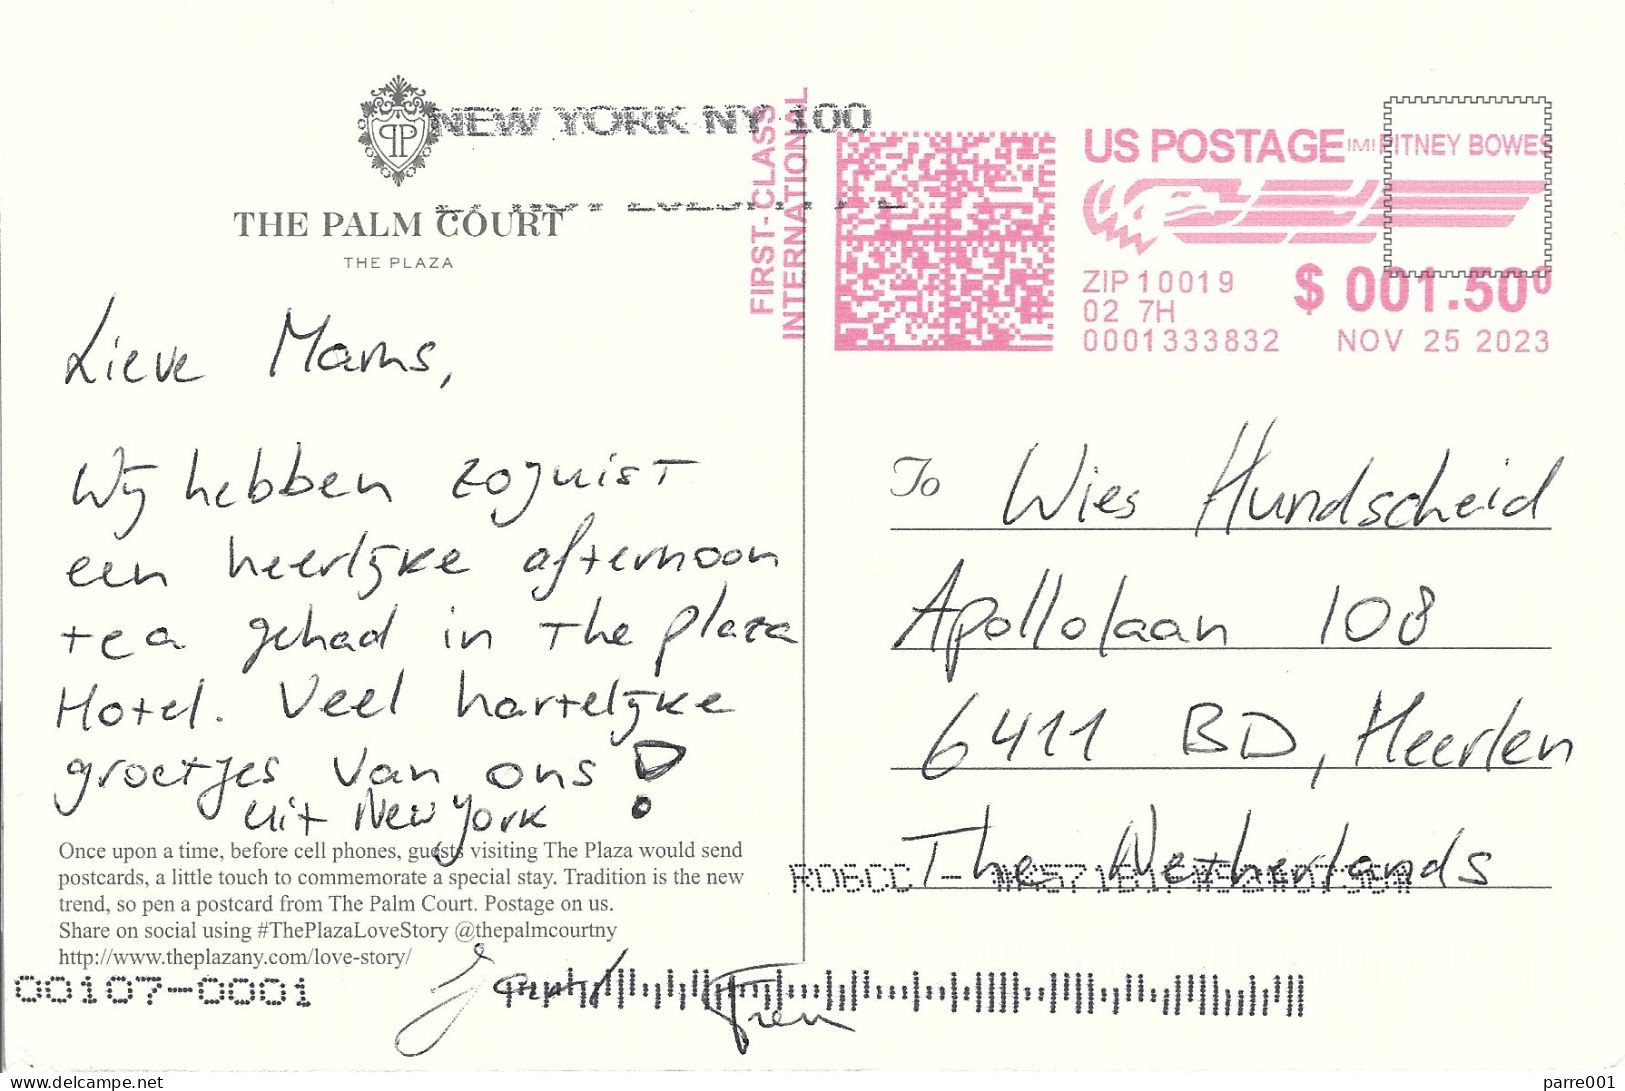 NEW YORK NY 100
THE PALM COURT
THE PLAZA
FIRST-CLASS
INTERNATIONAL
US POSTAGE IMI PITNEY BOWES
ZIP 10019
02 7H
0001333832
$ 001.50⁰
NOV 25 2023
Lieve Mams,
Wij hebben zojuist
een heerlijke afternoon
tea gehad in The plaza
Hotel. Veel hartelijke
groetjes van ons!
uit New York
Once upon a time, before cell phones, guests visiting The Plaza would send
postcards, a little touch to commemorate a special stay. Tradition is the new
trend, so pen a postcard from The Palm Court. Postage on us.
Share on social using #ThePlazaLoveStory @thepalmcourtny
http://www.theplazany.com/love-story/
To Wies Hundscheid
Apollolaan 108
6411 BD, Heerlen
The Netherlands
00107-0001
www.delcampe.net
parre001